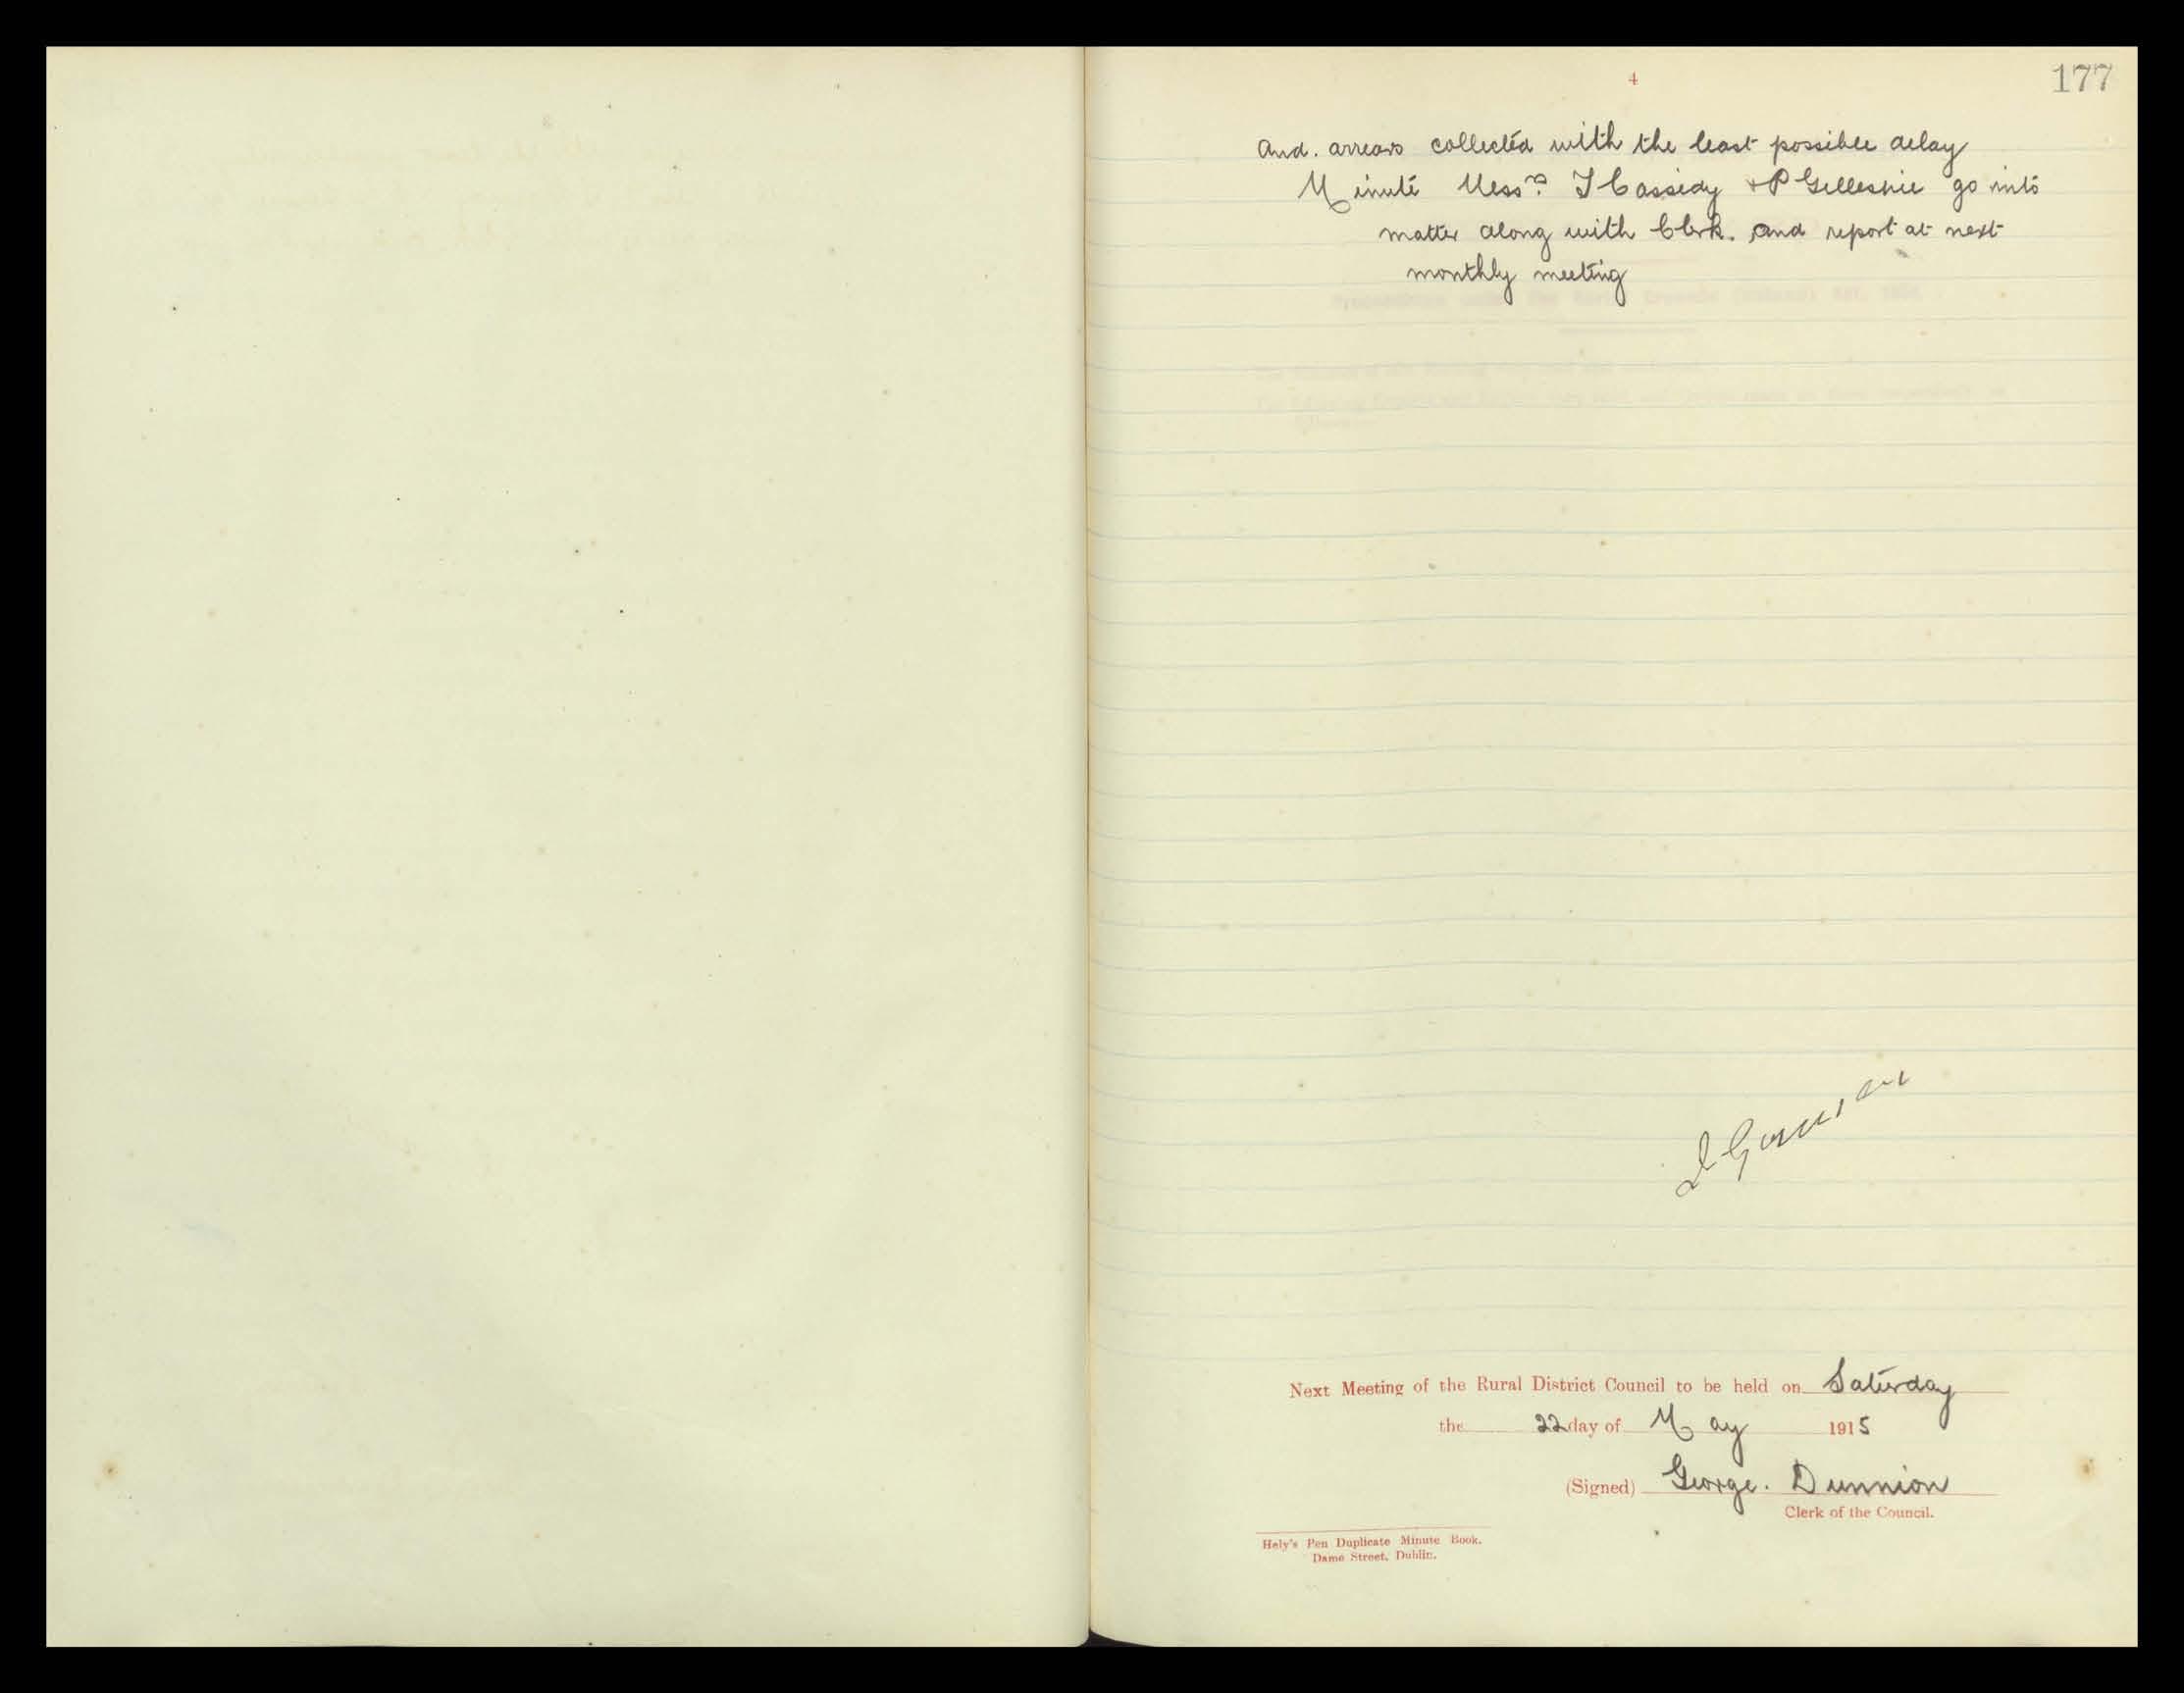 4
177
and. arrears collected with the least possible delay
Minute Messrs T Cassidy + P Gillespie go into
matter along with Clerk. and report at next
monthly meeting
Next Meeting of the Rural District Council to be held on Saturday
the 22 day of May 1915
(Signed) George. Dunnion
Clerk of the Council.
Hely's Pen Duplicate Minute Book.
Dame Street, Dublin.